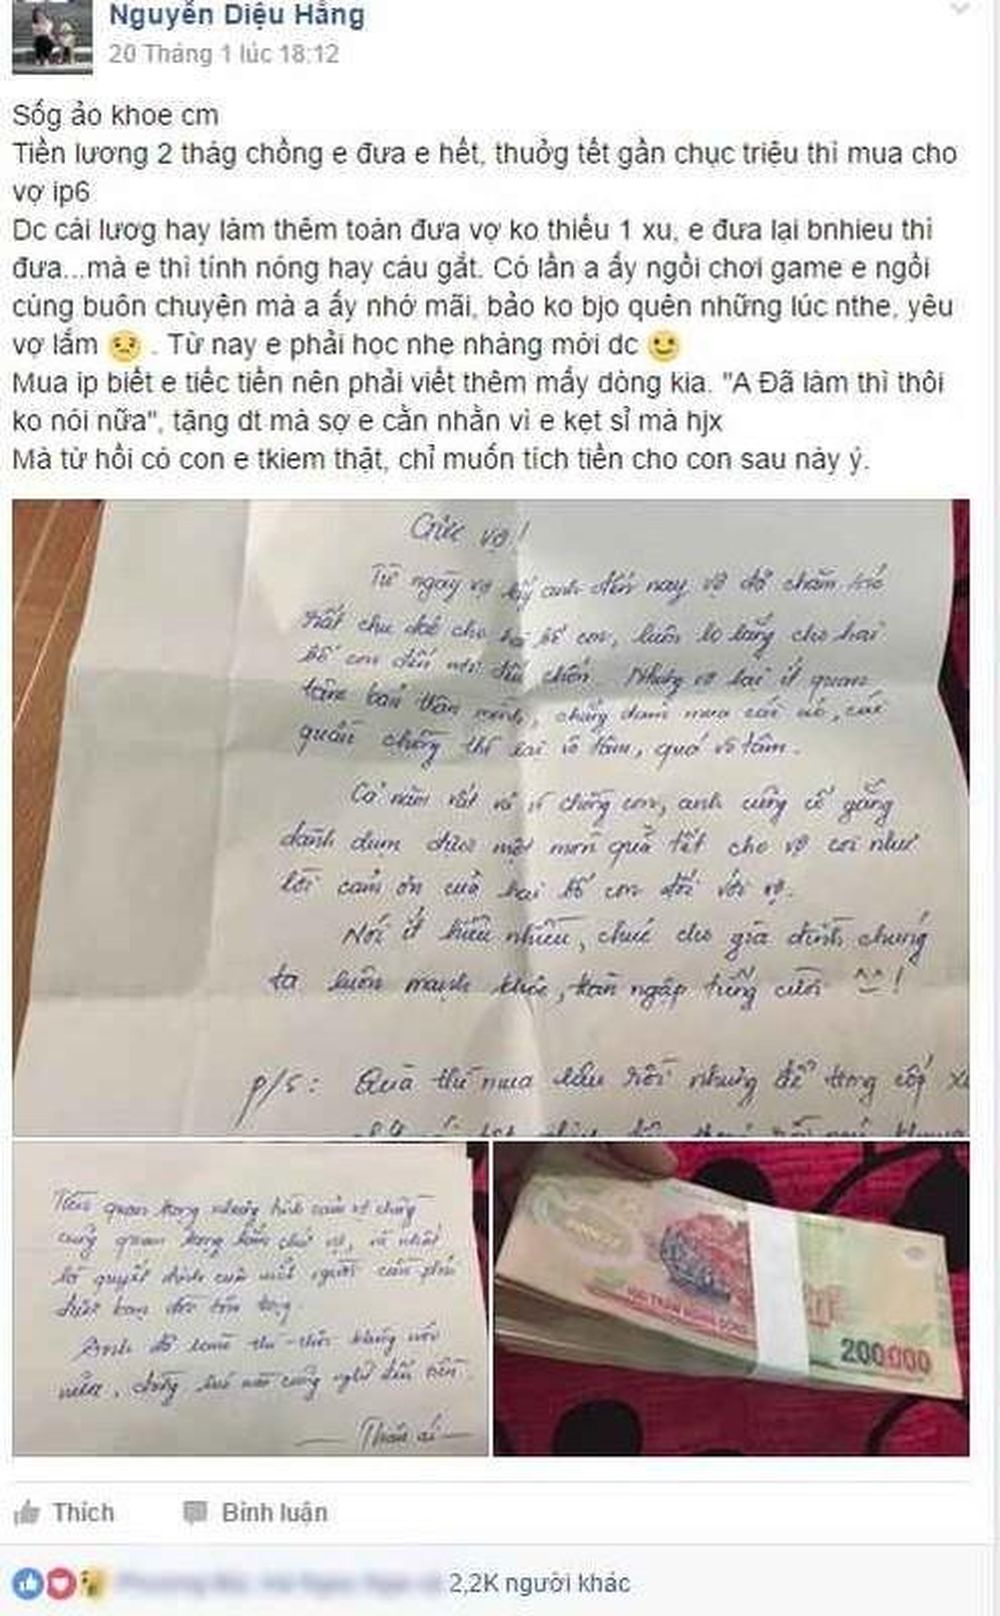 Nguyễn Diệu Hằng
20 Tháng 1 lúc 18:12
Sốg ảo khoe cm
Tiền lương 2 thág chồng e đưa e hết, thuởg tết gần chục triệu thì mua cho
vợ ip6
Dc cái lươg hay làm thêm toàn đưa vợ ko thiếu 1 xu, e đưa lại bnhieu thì
đưa...mà e thì tính nóng hay cáu gắt. Có lần a ấy ngồi chơi game e ngồi
cùng buôn chuyện mà a ấy nhớ mãi, bảo ko bjo quên những lúc nthe, yêu
vợ lắm 😟 . Từ nay e phải học nhẹ nhàng mới dc 😉
Mua ip biết e tiếc tiền nên phải viết thêm mấy dòng kia. "A Đã làm thì thôi
ko nói nữa", tặng dt mà sợ e cằn nhằn vì e kẹt sỉ mà hjx
Mà từ hồi có con e tkiem thật, chỉ muốn tích tiền cho con sau này ý.
Gửi vợ!
Từ ngày vợ lấy anh đến nay vợ đã chăm sóc
rất chu đáo cho hai bố con, luôn lo lắng cho hai
bố con đến Nhưng vợ lại ít quan
tâm bản thân mình, chẳng dám mua cái áo, cái
quần chồng thì lại vô tâm, quá vô tâm.
Cả năm vất vả vì chồng con, anh cũng cố gắng
dành dụm được một món quà tết cho vợ coi như
lời cảm ơn của hai bố con đối với vợ.
Nói ít hiểu nhiều, chúc cho gia đình chúng
ta luôn mạnh khỏe, tràn ngập tiếng cười ^^!
p/s: Quà thì mua lâu rồi nhưng để trong cốp
Tiền quan trọng nhưng tình cảm vợ chồng
cũng quan trọng lắm chứ vợ, và nhất
là quyết định của mỗi người cần phải
được bạn đời tôn trọng.
Anh đã làm thì thôi không nói
nữa, đừng
Thân ái
200000
Thích
Bình luận
2,2K người khác